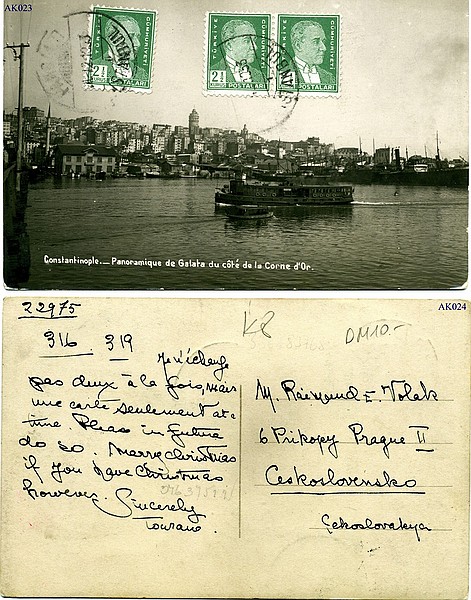 AK023
TÜRKİYE CUMHURİYETİ
2½ KURUŞ POSTALARI
TÜRKİYE CUMHURİYETİ
2½ KURUŞ POSTALARI
TÜRKİYE CUMHURİYETİ
2½ KURUŞ POSTALARI
Constantinople._ Panoramique de Galata du côté de la Corne d'Or.
AK024
22975
K8
DM10.-
316 319
Je n'échange
pas deux à la fois, mais
une carte seulement at a
time. Please in future
do so. Merry Christmas
if you have Christmas
however.
Sincerely
M. Raimond E. Volak
6 Prikopy Prague II
Ceskoslovensko
Çekoslovakya